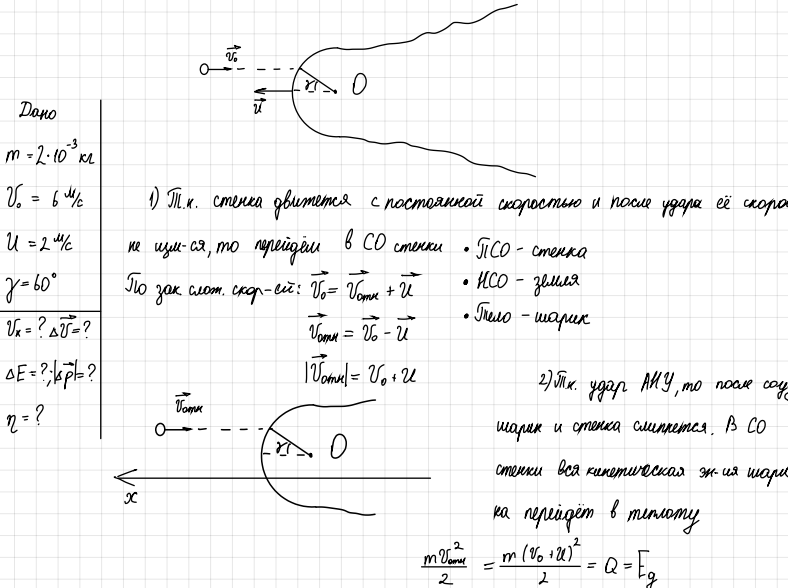 v₀
γ
O
u
Дано
m = 2·10⁻³ кг
V₀ = 6 м/с
U = 2 м/с
γ = 60°
Vк = ? ΔV = ?
ΔE = ?; |Δp| = ?
η = ?
1) Т.к. стенка движется с постоянной скоростью и после удара её скоро
не изм-ся, то перейдём в СО стенки
По зак слож. скор-ей: V₀ = Vотн + U
Vотн = V₀ - U
|Vотн| = V₀ + U
• ПСО - стенка
• НСО - земля
• Тело - шарик
Vотн
γ
O
x
2) Т.к. удар АНУ, то после соу
шарик и стенка слипнется. В СО
стенки вся кинетическая эн-ия шари
ка перейдёт в теплоту
mVотн²/2 = m(V₀+U)²/2 = Q = Eд